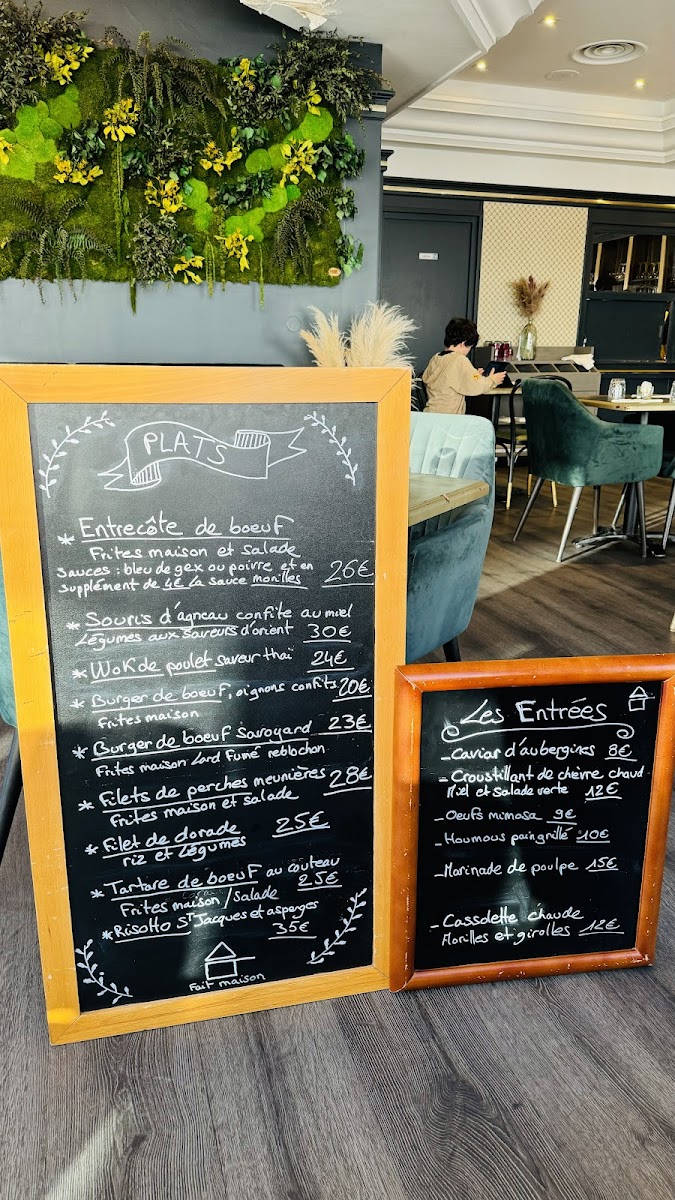 PLATS
* Entrecôte de boeuf
Frites maison et salade
Sauces : bleu de gex ou poivre et en
supplément de 4€ la sauce morilles 26€
* Souris d'agneau confite au miel
Légumes aux saveurs d'orient 30€
* Wok de poulet saveur thaï 24€
* Burger de boeuf, oignons confits 20€
Frites maison
* Burger de boeuf savoyard 23€
Frites maison Lard Fumé reblochon
* Filets de perches meunières 28€
Frites maison et salade
* Filet de dorade 25€
riz et Légumes
* Tartare de boeuf au couteau
Frites maison / Salade 25€
* Risotto ST Jacques et asperges
35€
Fait maison
Les Entrées
- Caviar d'aubergines 8€
- Croustillant de chèvre chaud
Miel et salade verte 12€
- Oeufs mimosa 9€
- Houmous pain grillé 10€
- Marinade de poulpe 15€
- Cassolette chaude
Morilles et girolles 12€